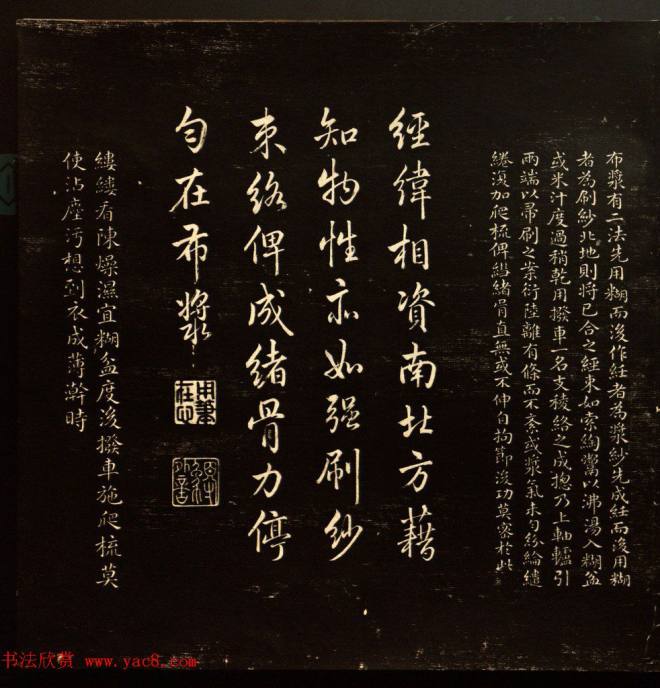 布漿有二法先用糊而後作紝者為漿紗先成紝而後用糊
者為刷紗北地則將已合之經束如索綯鬻以沸湯入糊盆
或米汁度過稍乾用撥車一名支稜絡之成摠乃上軸轤引
兩端以帚刷之業衍陸離有條而不紊或漿氣未勻紛綸纏
綣復加爬梳俾繼緒骨直無或不伸自拘節後功莫密於此
經緯相資南北方藉
知物性亦如强刷紗
束絡俾成緒骨力停
勻在布漿
用筆在心
縷縷看陳燥濕宜糊盆度後撥車施爬梳莫
使沾塵污想到衣成薄澣時
书法欣赏 www.yac8.com